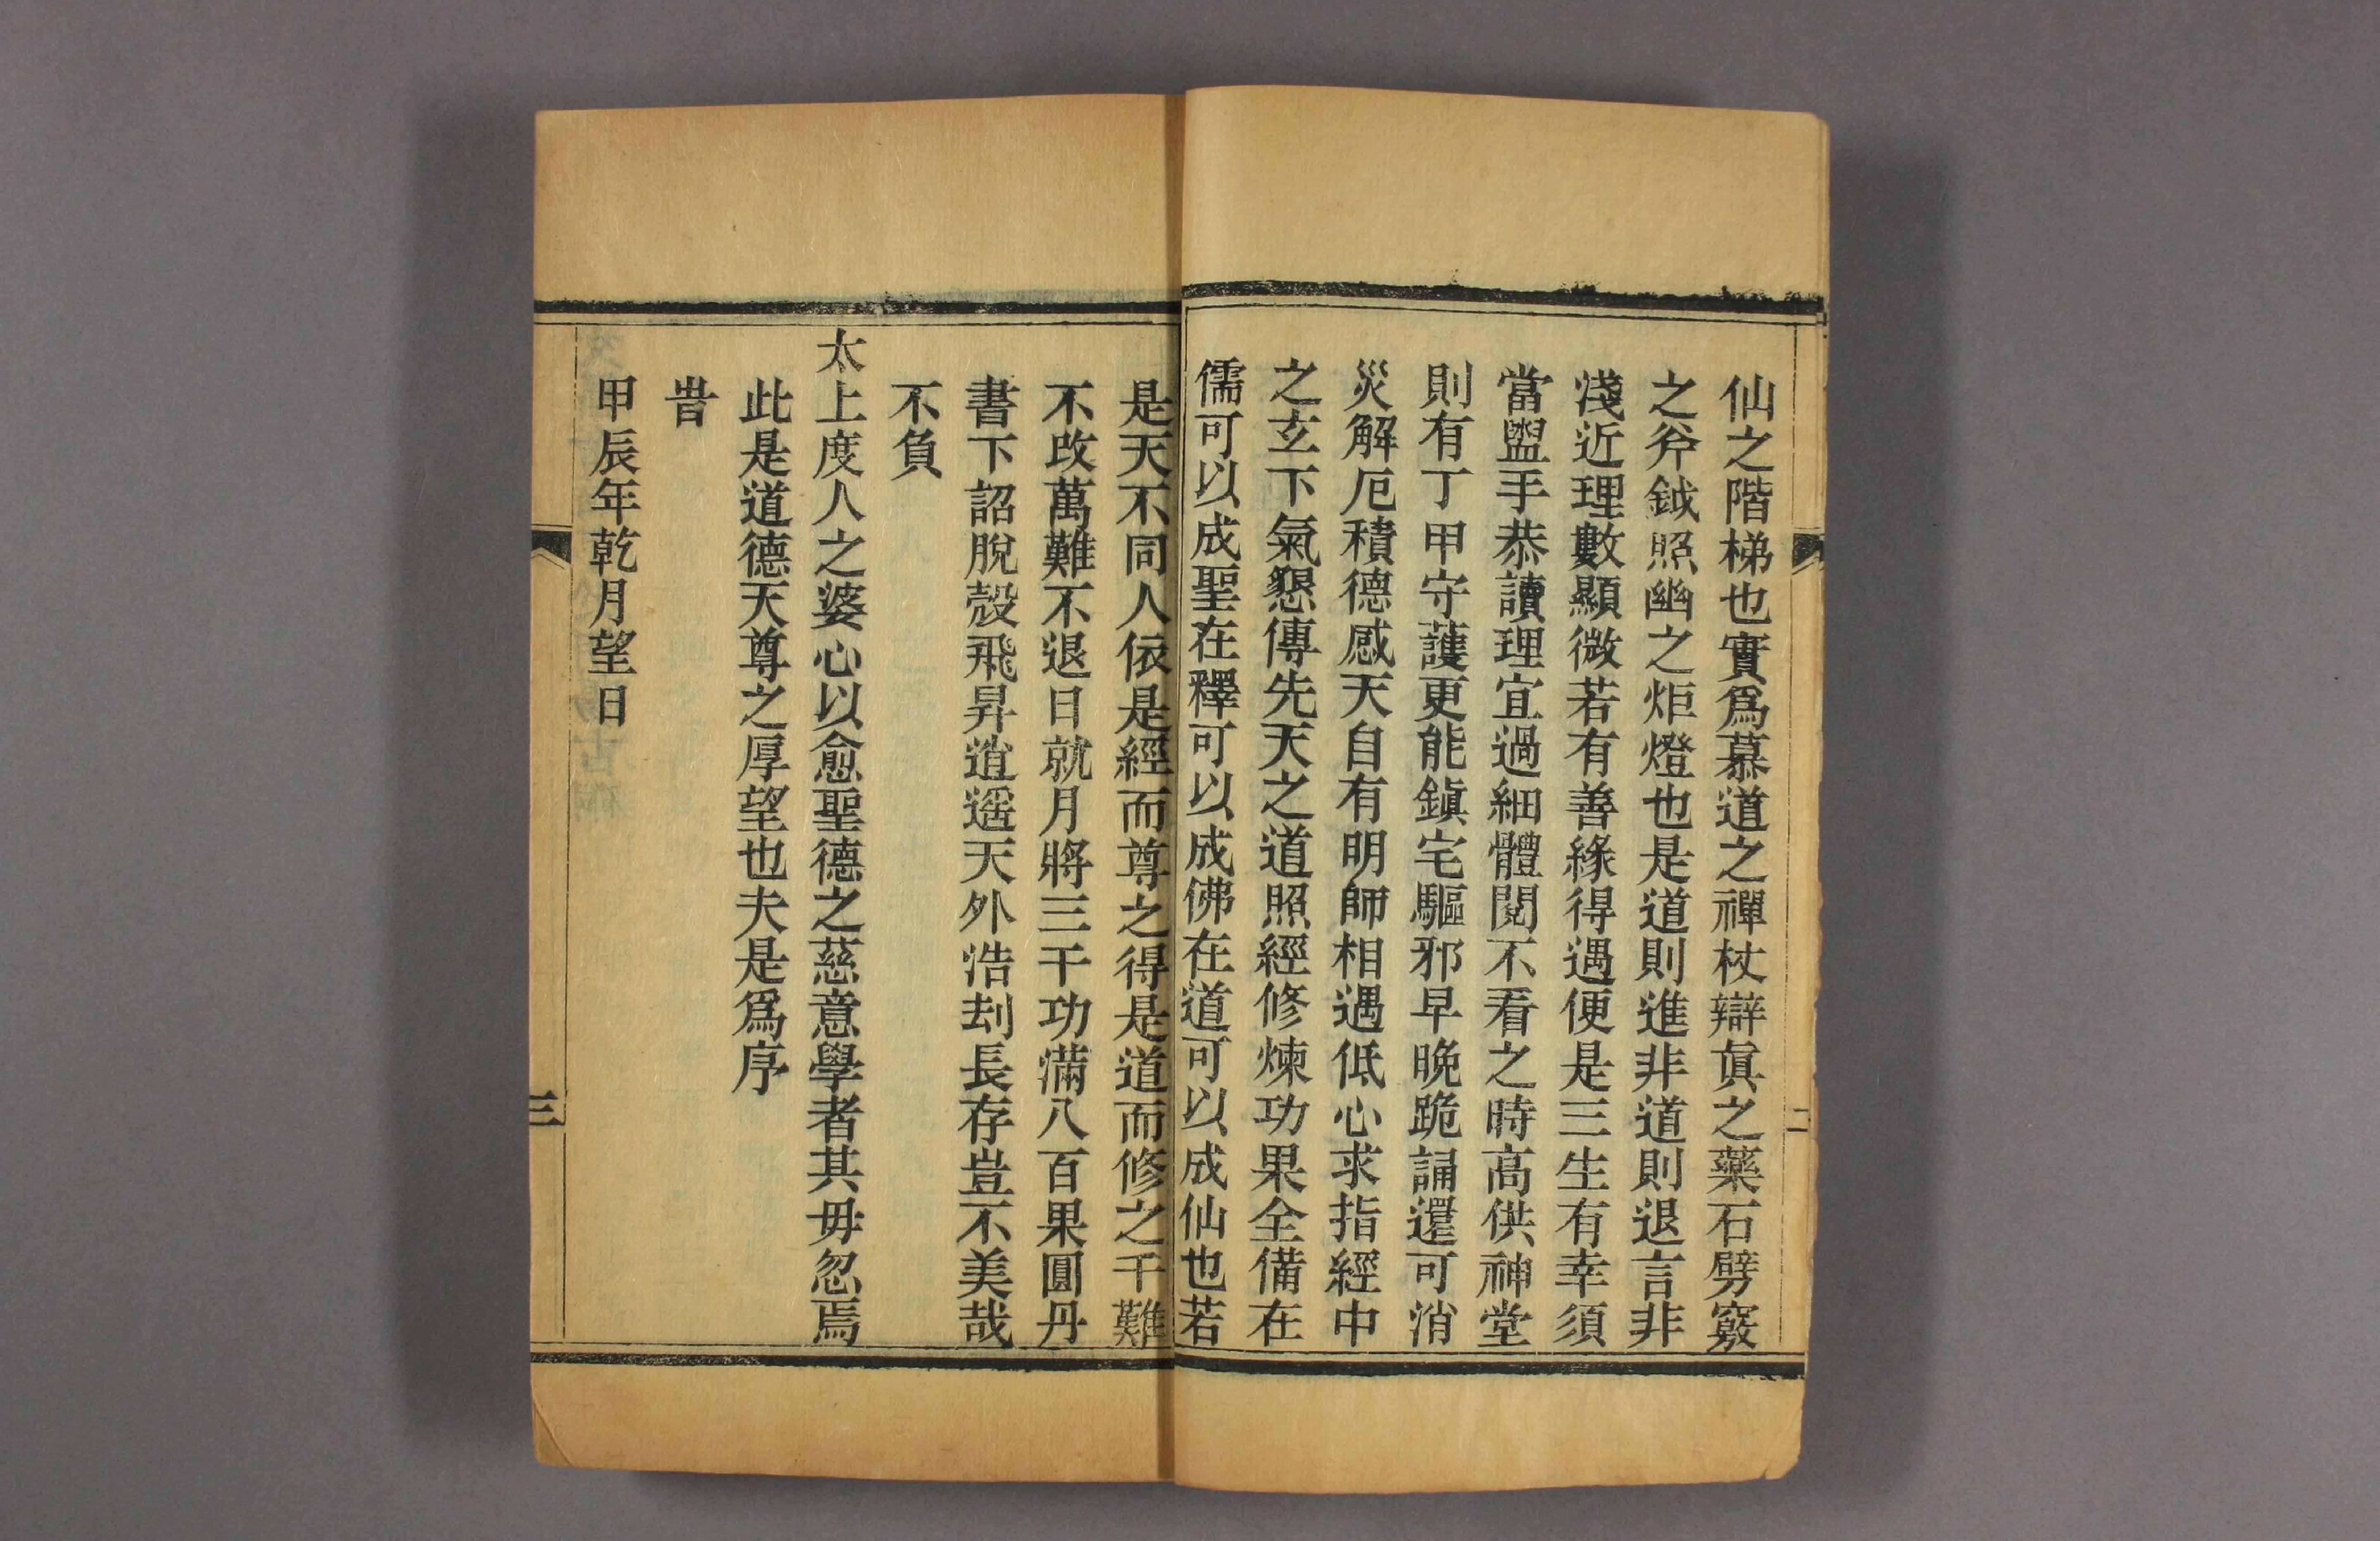 仙之階梯也實爲慕道之禪杖辯眞之藥石劈竅
之斧鉞照幽之炬燈也是道則進非道則退言非
淺近理數顯微若有善緣得遇便是三生有幸須
當盥手恭讀理宜過細體閱不看之時高供神堂
則有丁甲守護更能鎭宅驅邪早晚跪誦還可消
災解厄積德感天自有明師相遇低心求指經中
之玄下氣懇傳先天之道照經修煉功果全備在
儒可以成聖在釋可以成佛在道可以成仙也若
二
是天不同人依是經而尊之得是道而修之千難
不改萬難不退日就月將三千功滿八百果圓丹
書下詔脫殼飛昇逍遥天外浩刦長存豈不美哉
不負
太上度人之婆心以愈聖德之慈意學者其毋忽焉
此是道德天尊之厚望也夫是爲序
旹
甲辰年乾月望日
三